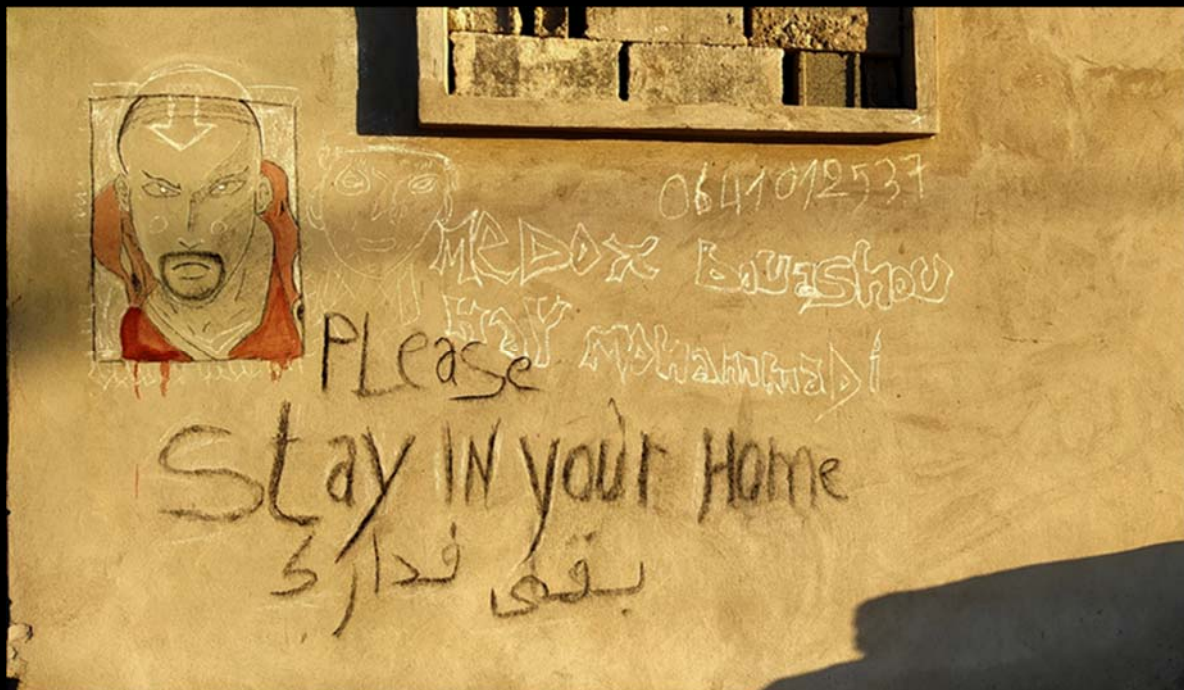 0641012537
MEDOX Bouzshou
HaY MOHammaDi
PLease
Stay IN your Home
بقى فدارك